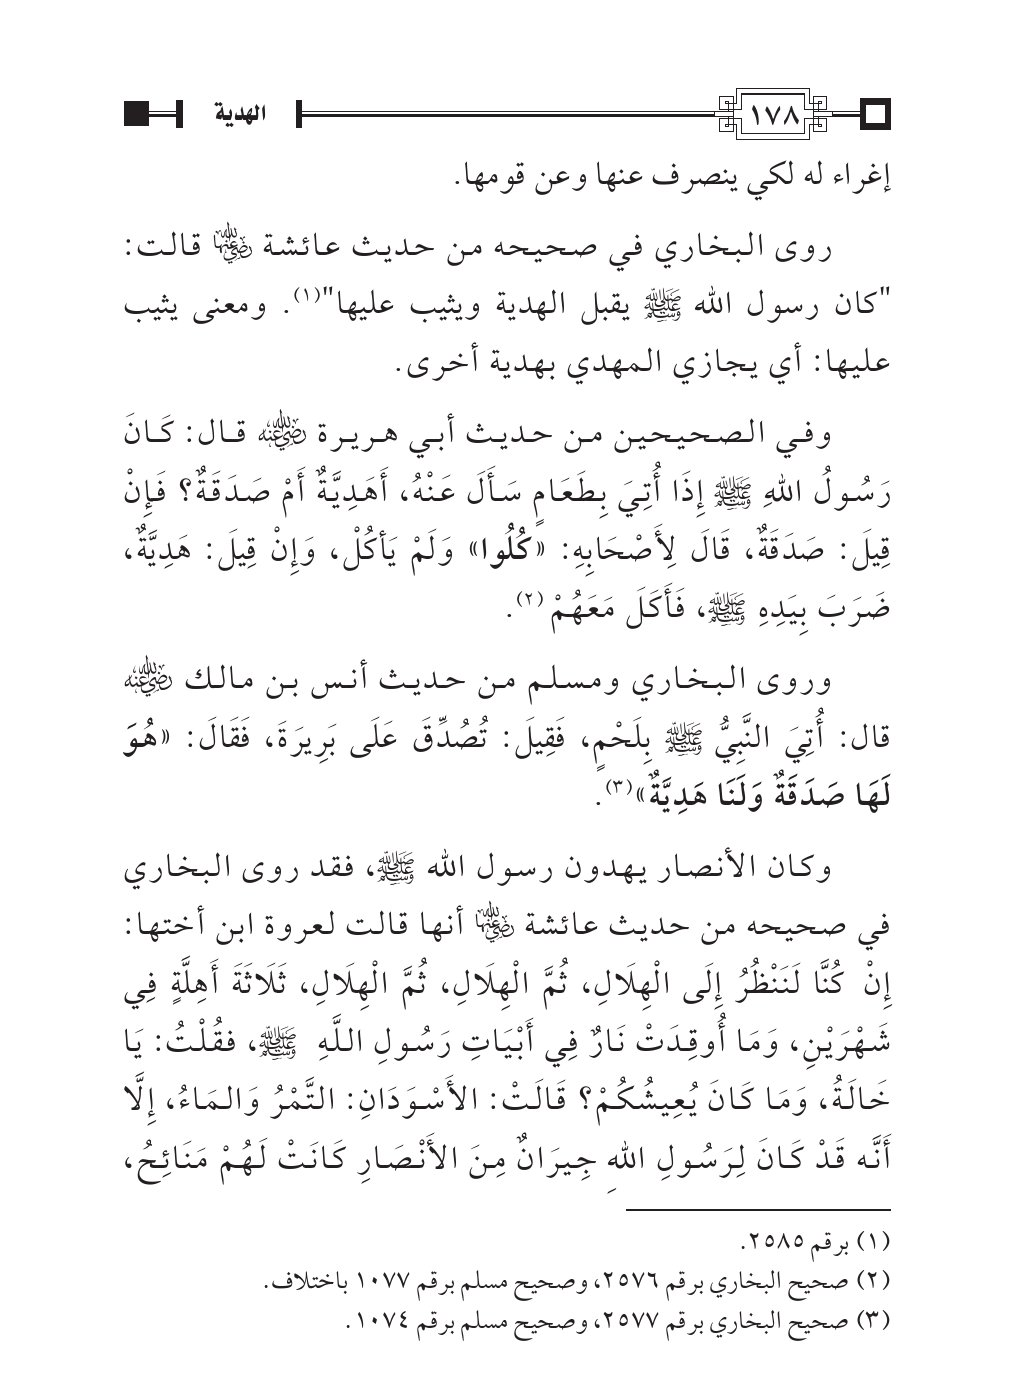 ١٧٨
الهدية
إغراء له لكي ينصرف عنها وعن قومها.
روى البخاري في صحيحه من حديث عائشة رضي الله عنها قالت:
"كان رسول الله ﷺ يقبل الهدية ويثيب عليها"(١). ومعنى يثيب
عليها: أي يجازي المهدي بهدية أخرى.
وفي الصحيحين من حديث أبي هريرة رضي الله عنه قال: كَانَ
رَسُولُ اللهِ ﷺ إِذَا أُتِيَ بِطَعَامٍ سَأَلَ عَنْهُ، أَهَدِيَّةٌ أَمْ صَدَقَةٌ؟ فَإِنْ
قِيلَ: صَدَقَةٌ، قَالَ لِأَصْحَابِهِ: «كُلُوا» وَلَمْ يَأكُلْ، وَإِنْ قِيلَ: هَدِيَّةٌ،
ضَرَبَ بِيَدِهِ ﷺ، فَأَكَلَ مَعَهُمْ(٢).
وروى البخاري ومسلم من حديث أنس بن مالك رضي الله عنه
قال: أُتِيَ النَّبِيُّ ﷺ بِلَحْمٍ، فَقِيلَ: تُصُدِّقَ عَلَى بَرِيرَةَ، فَقَالَ: «هُوَ
لَهَا صَدَقَةٌ وَلَنَا هَدِيَّةٌ»(٣).
وكان الأنصار يهدون رسول الله ﷺ، فقد روى البخاري
في صحيحه من حديث عائشة رضي الله عنها أنها قالت لعروة ابن أختها:
إِنْ كُنَّا لَنَنْظُرُ إِلَى الْهِلَالِ، ثُمَّ الْهِلَالِ، ثُمَّ الْهِلَالِ، ثَلَاثَةَ أَهِلَّةٍ فِي
شَهْرَيْنِ، وَمَا أُوقِدَتْ نَارٌ فِي أَبْيَاتِ رَسُولِ اللَّهِ ﷺ، فقُلْتُ: يَا
خَالَةُ، وَمَا كَانَ يُعِيشُكُمْ؟ قَالَتْ: الأَسْوَدَانِ: التَّمْرُ وَالمَاءُ، إِلَّا
أَنَّه قَدْ كَانَ لِرَسُولِ اللهِ جِيرَانٌ مِنَ الأَنْصَارِ كَانَتْ لَهُمْ مَنَائِحُ،
(١) برقم ٢٥٨٥.
(٢) صحيح البخاري برقم ٢٥٧٦، وصحيح مسلم برقم ١٠٧٧ باختلاف.
(٣) صحيح البخاري برقم ٢٥٧٧، وصحيح مسلم برقم ١٠٧٤.